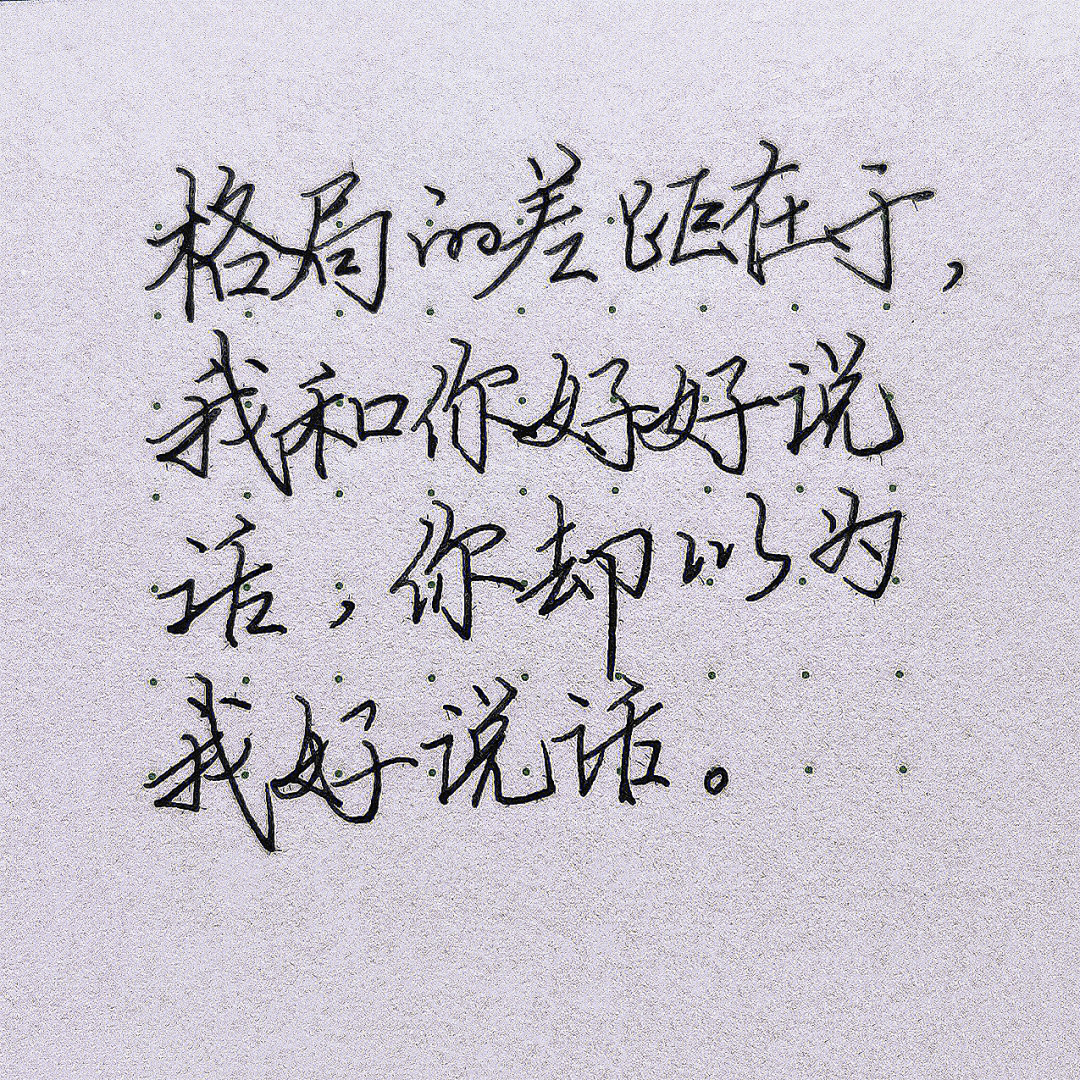 格局的差距在于，
我和你好好说
话，你却以为
我好说话。